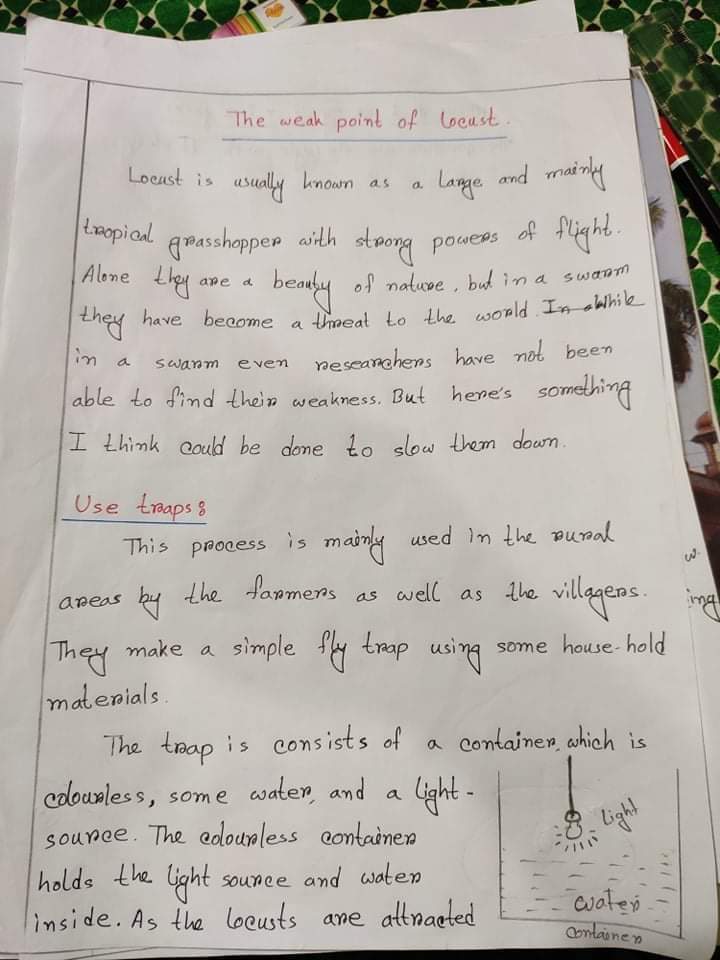 The weak point of Locust.
Locust is usually known as a large and mainly
tropical grasshopper with strong powers of flight.
Alone they are a beauty of nature, but in a swarm
they have become a threat to the world. In While
in a swarm even researchers have not been
able to find their weakness. But here's something
I think could be done to slow them down.
Use traps:
This process is mainly used in the rural
areas by the farmers as well as the villagers.
They make a simple fly trap using some house-hold
materials.
The trap is consists of a container, which is
colourless, some water, and a light-
source. The colourless container
holds the light source and water
inside. As the locusts are attracted
light
water
container
w.
ing